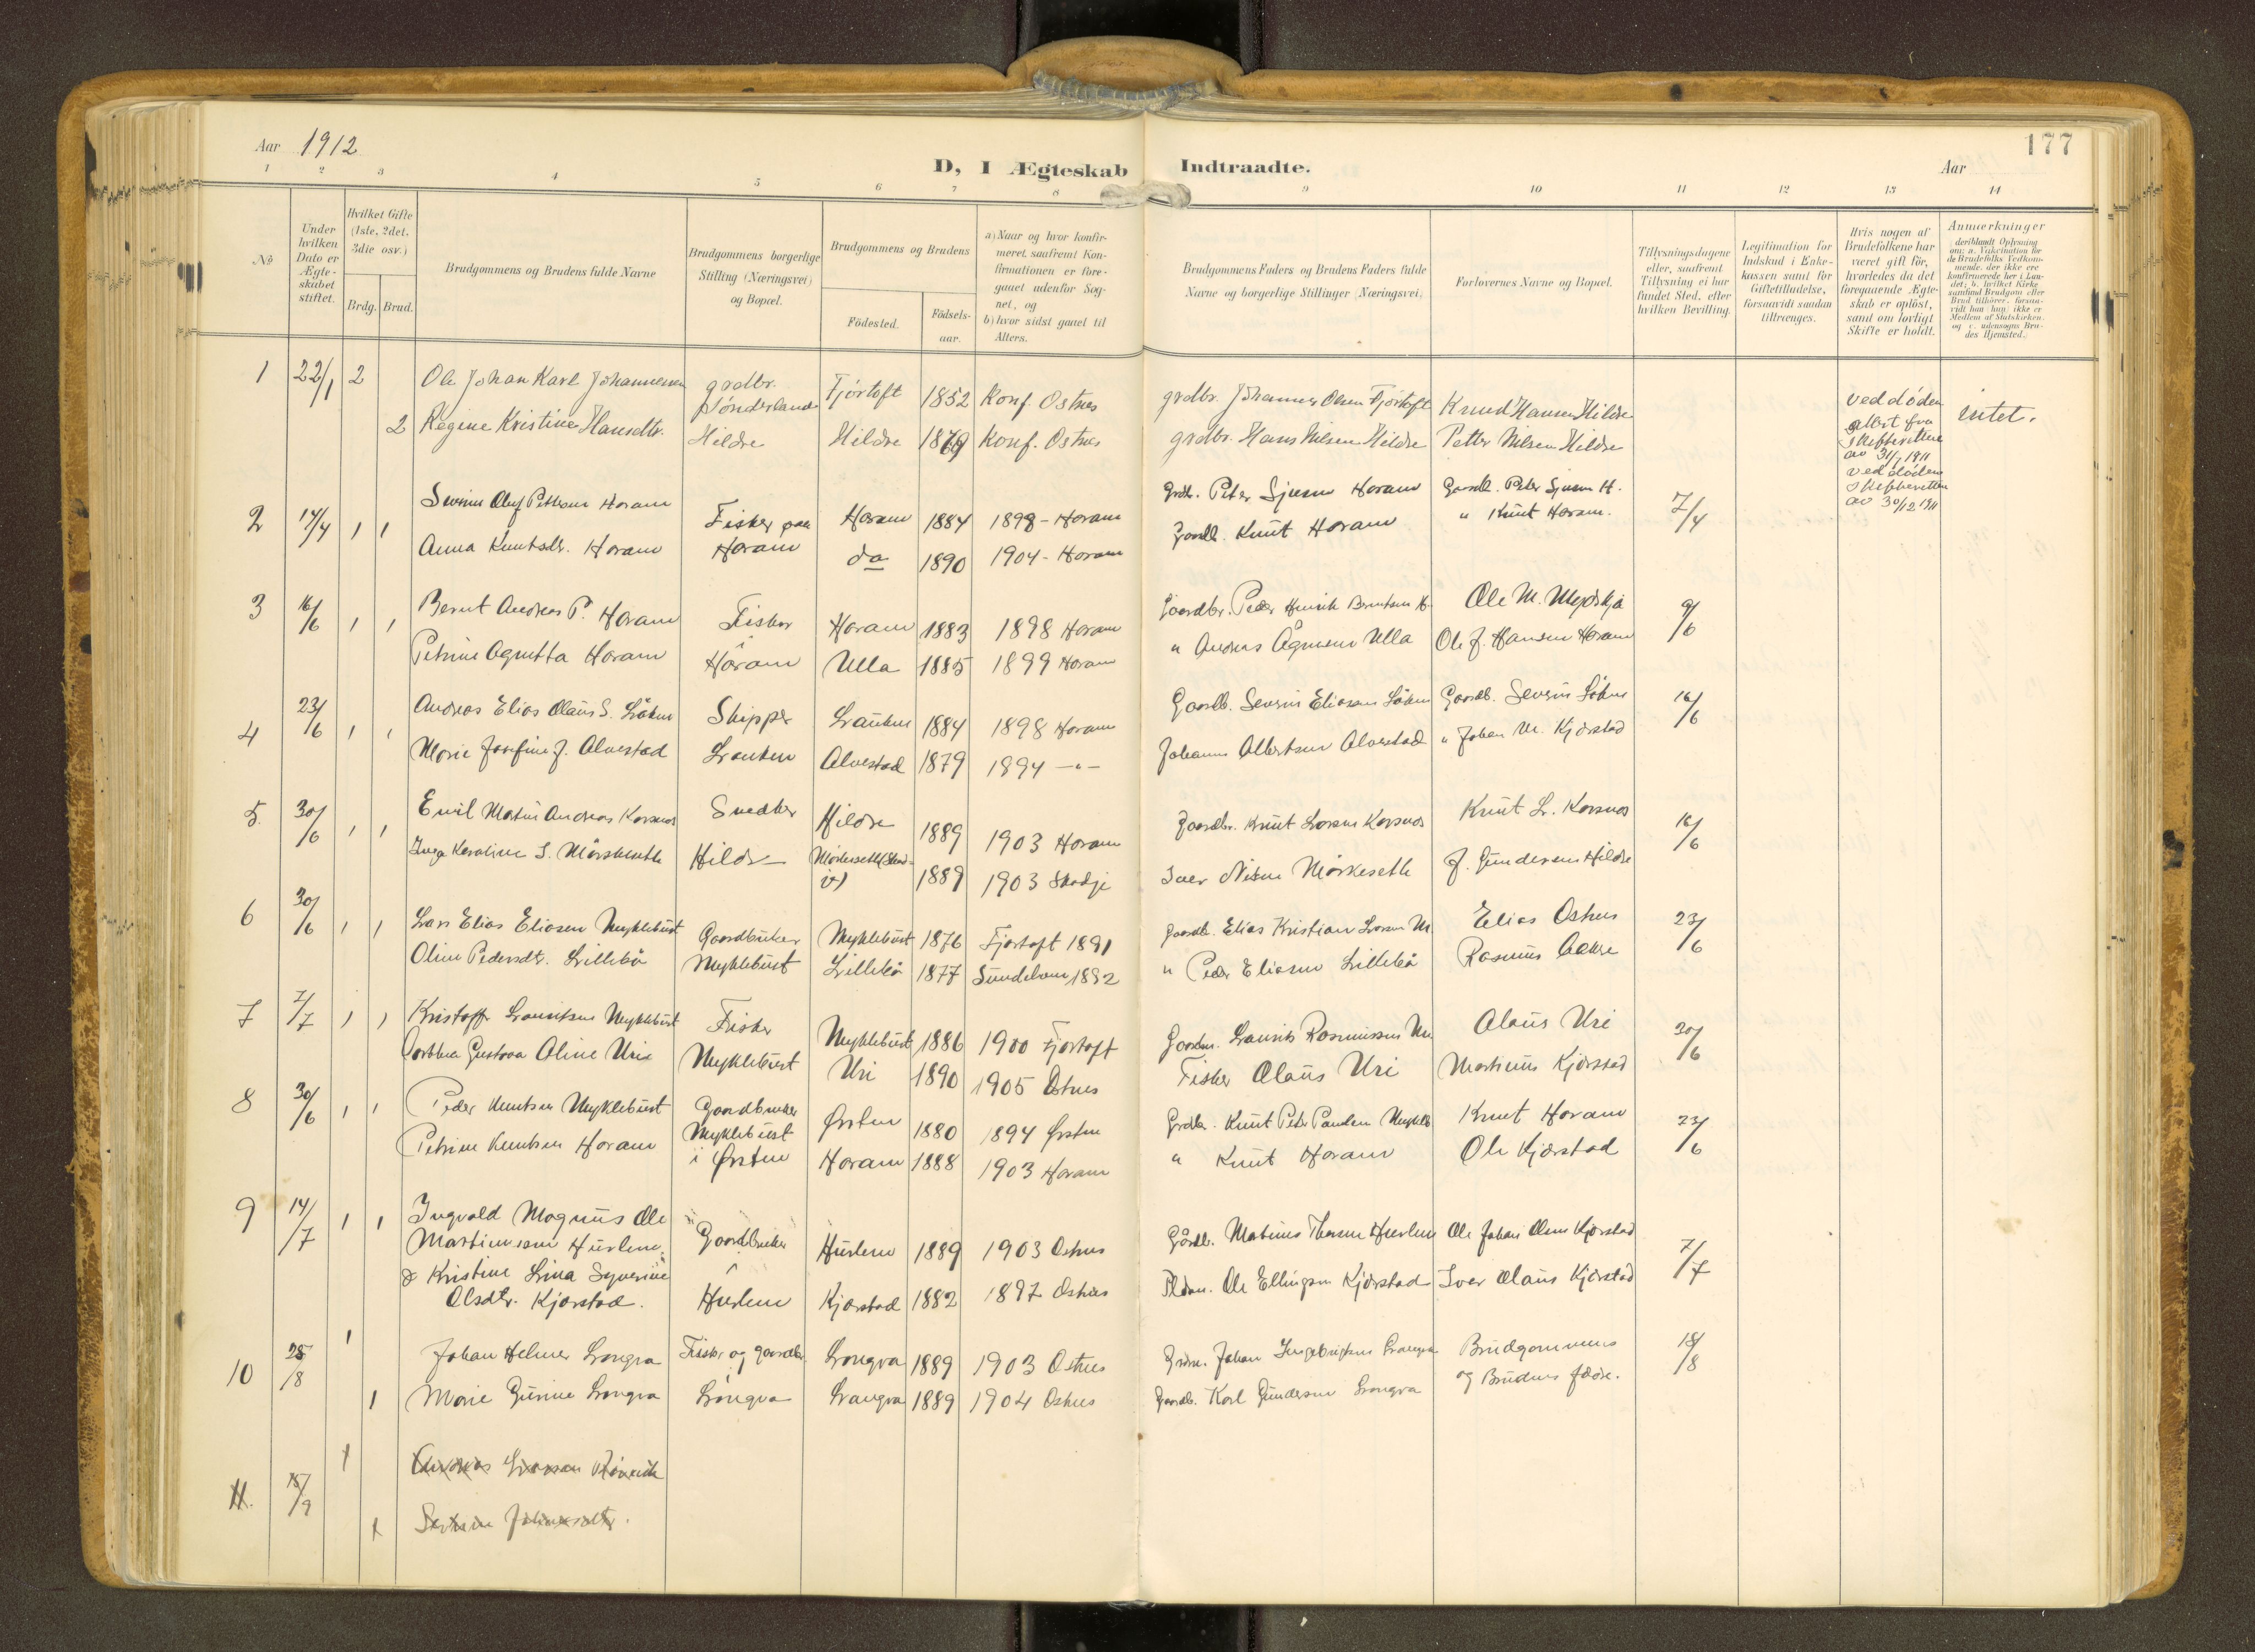 177
Aar 1912
D, I Ægteskab Indtraadte.
Aar
1 2 3 4 5 6 7 8 9 10 11 12 13 14
No
Under hvilken Dato er Ægteskabet stiftet.
Hvilket Gifte (1ste, 2det, 3die osv.)
Brdg. Brud.
Brudgommens og Brudens fulde Navne
Brudgommens borgerlige Stilling (Næringsvei) og Bopæl.
Brudgommens og Brudens
Födested.
Födsels-aar.
a) Naar og hvor konfir-
meret, saafremt Kon-
firmationen er fore-
gaaet udenfor Sog-
net, og
b) hvor sidst gaaet til
Alters.
Brudgommens Faders og Brudens Faders fulde
Navne og borgerlige Stillinger (Næringsvei)
Forlovernes Navne og Bopæl.
Tillysningsdagene
eller, saafremt
Tillysning ei har
fundet Sted, efter
hvilken Bevilling.
Legitimation for
Indskud i Enke-
kassen samt for
Giftetilladelse,
forsaavidt saadan
tiltrænges.
Hvis nogen af
Brudefolkene har
været gift för,
hvorledes da det
foregaaende Ægte-
skab er oplöst,
samt om lovligt
Skifte er holdt.
Anmærkninger
deriblandt Oplysning
om: a. Vakcination for
de Brudefolks Vedkom-
mende, der ikke ere
konfirmerede her i Lan-
det; b. hvilket Kirke-
samfund Brudgom eller
Brud tilhörer, forsaa-
vidt han (hun) ikke er
Medlem af Statskirken,
og c. udensogns Bru-
des Hjemsted.
1 22/1 2 Ole Johan Karl Johannessen grdbr. Sönderland Fjörtoft 1852 Konf. Ostnes grdbr. Johannes Olsen Fjörtoft Knud Hansen Hildre ved döden intet.
2 Regine Kristine Hansdtr. Hildre Hildre 1869 Konf. Ostnes grdbr. Hans Nilsen Hildre Petter Nilsen Hildre
attest fra
Skifteretten
av 31/7 1911
ved döden
Skifteretten
av 30/12 1911
2 14/4 1 1 Severin Oluf Pettersen Haram Fisker paa Haram 1884 1898 - Haram Grdb. Peter Sjursen Haram Gaardb. Peter Sjursen H. 7/4
Anna Knutsdtr. Haram Haram do 1890 1904 - Haram Gaardb. Knut Haram " Knut Haram.
3 16/6 1 1 Bernt Andreas P. Haram Fisker Haram 1883 1898 Haram Gaardbr. Peder Henrik Berntsen H. Ole M. 9/6
Petrine Agnetta Haram Haram Ulla 1885 1899 Haram " Andreas Ågesen Ulla Ole J. Hansen Haram
4 23/6 1 1 Andreas Elias Olaus S. Löken Skipper Lauken 1884 1898 Haram Gaardb. Severin Eliasen Löken Gaardb. Severin Löken 16/6
Marie Josefine J. Alvestad Lauken Alvestad 1879 1894 -"- Johannes Albertsen Alvestad " Johan M. Kjörstad
5. 30/6 1 1 Emil Martin Andreas Korsnes Snedker Hildre 1889 1903 Haram Gaardbr. Knut Larsen Korsnes Knut L. Korsnes 16/6
Inga Karoline I. Mörkeseth Hildre Mörkeseth 1889 1903 Skodje Iver Nilsen Mörkeseth J. Gundersen Hildre
6 30/6 1 1 Lars Elias Eliasen Myklebust Gaardbruker Myklebust 1876 Fjörtoft 1891 Gaardb. Elias Kristian Larsen M. Elias Ostnes 23/6
Oline Pedersdtr. Lillebö Myklebust Lillebö 1877 Sundalsven 1892 " Peder Eliasen Lillebö Rasmus Aakre
7 7/7 1 1 Kristoffer Lauritsen Myklebust Fisker Myklebust 1886 1900 Fjörtoft Gaardm. Laurits Rasmussen My. Olaus Uri 30/6
Gustava Oline Uri Myklebust Uri 1890 1905 Ostnes Fisker Olaus Uri Martinus Kjörstad
8 30/6 1 1 Peder Knutsen Myklebust Gaardbruker Ørsten 1880 1894 Ørsten Grdbr. Knut Peter Paulsen Mykleb. Knut Haram 23/6
Petrine Knutsen Haram Myklebust i Ørsten Haram 1888 1903 Haram " Knut Haram Ole Kjörstad
9 14/7 1 1 Ingvald Magnus Ole
Martinussen Hurlen Gaardbruker Hurlen 1889 1903 Ostnes Gårdb. Matinus Thoresen Hurlen Ole Johan Olsen Kjörstad 7/7
& Kristine Lina Syverine
Olsdtr. Kjörstad. Hurlen Kjörstad 1882 1897 Ostnes Ole Ellingsen Kjörstad Iver Olaus Kjörstad
10 25/8 1 Johan Helmer Longva Fisker og gaardbr. Longva 1889 1903 Ostnes Johan Ingebrigtsen Longva Brudgommens 18/8
1 Marie Gurine Longva Longva Longva 1889 1904 Ostnes Gaardb. Karl Gundersen Longva og Brudens fædre.
11. 15/9 1 Andreas Larsen
1 Johansdtr.